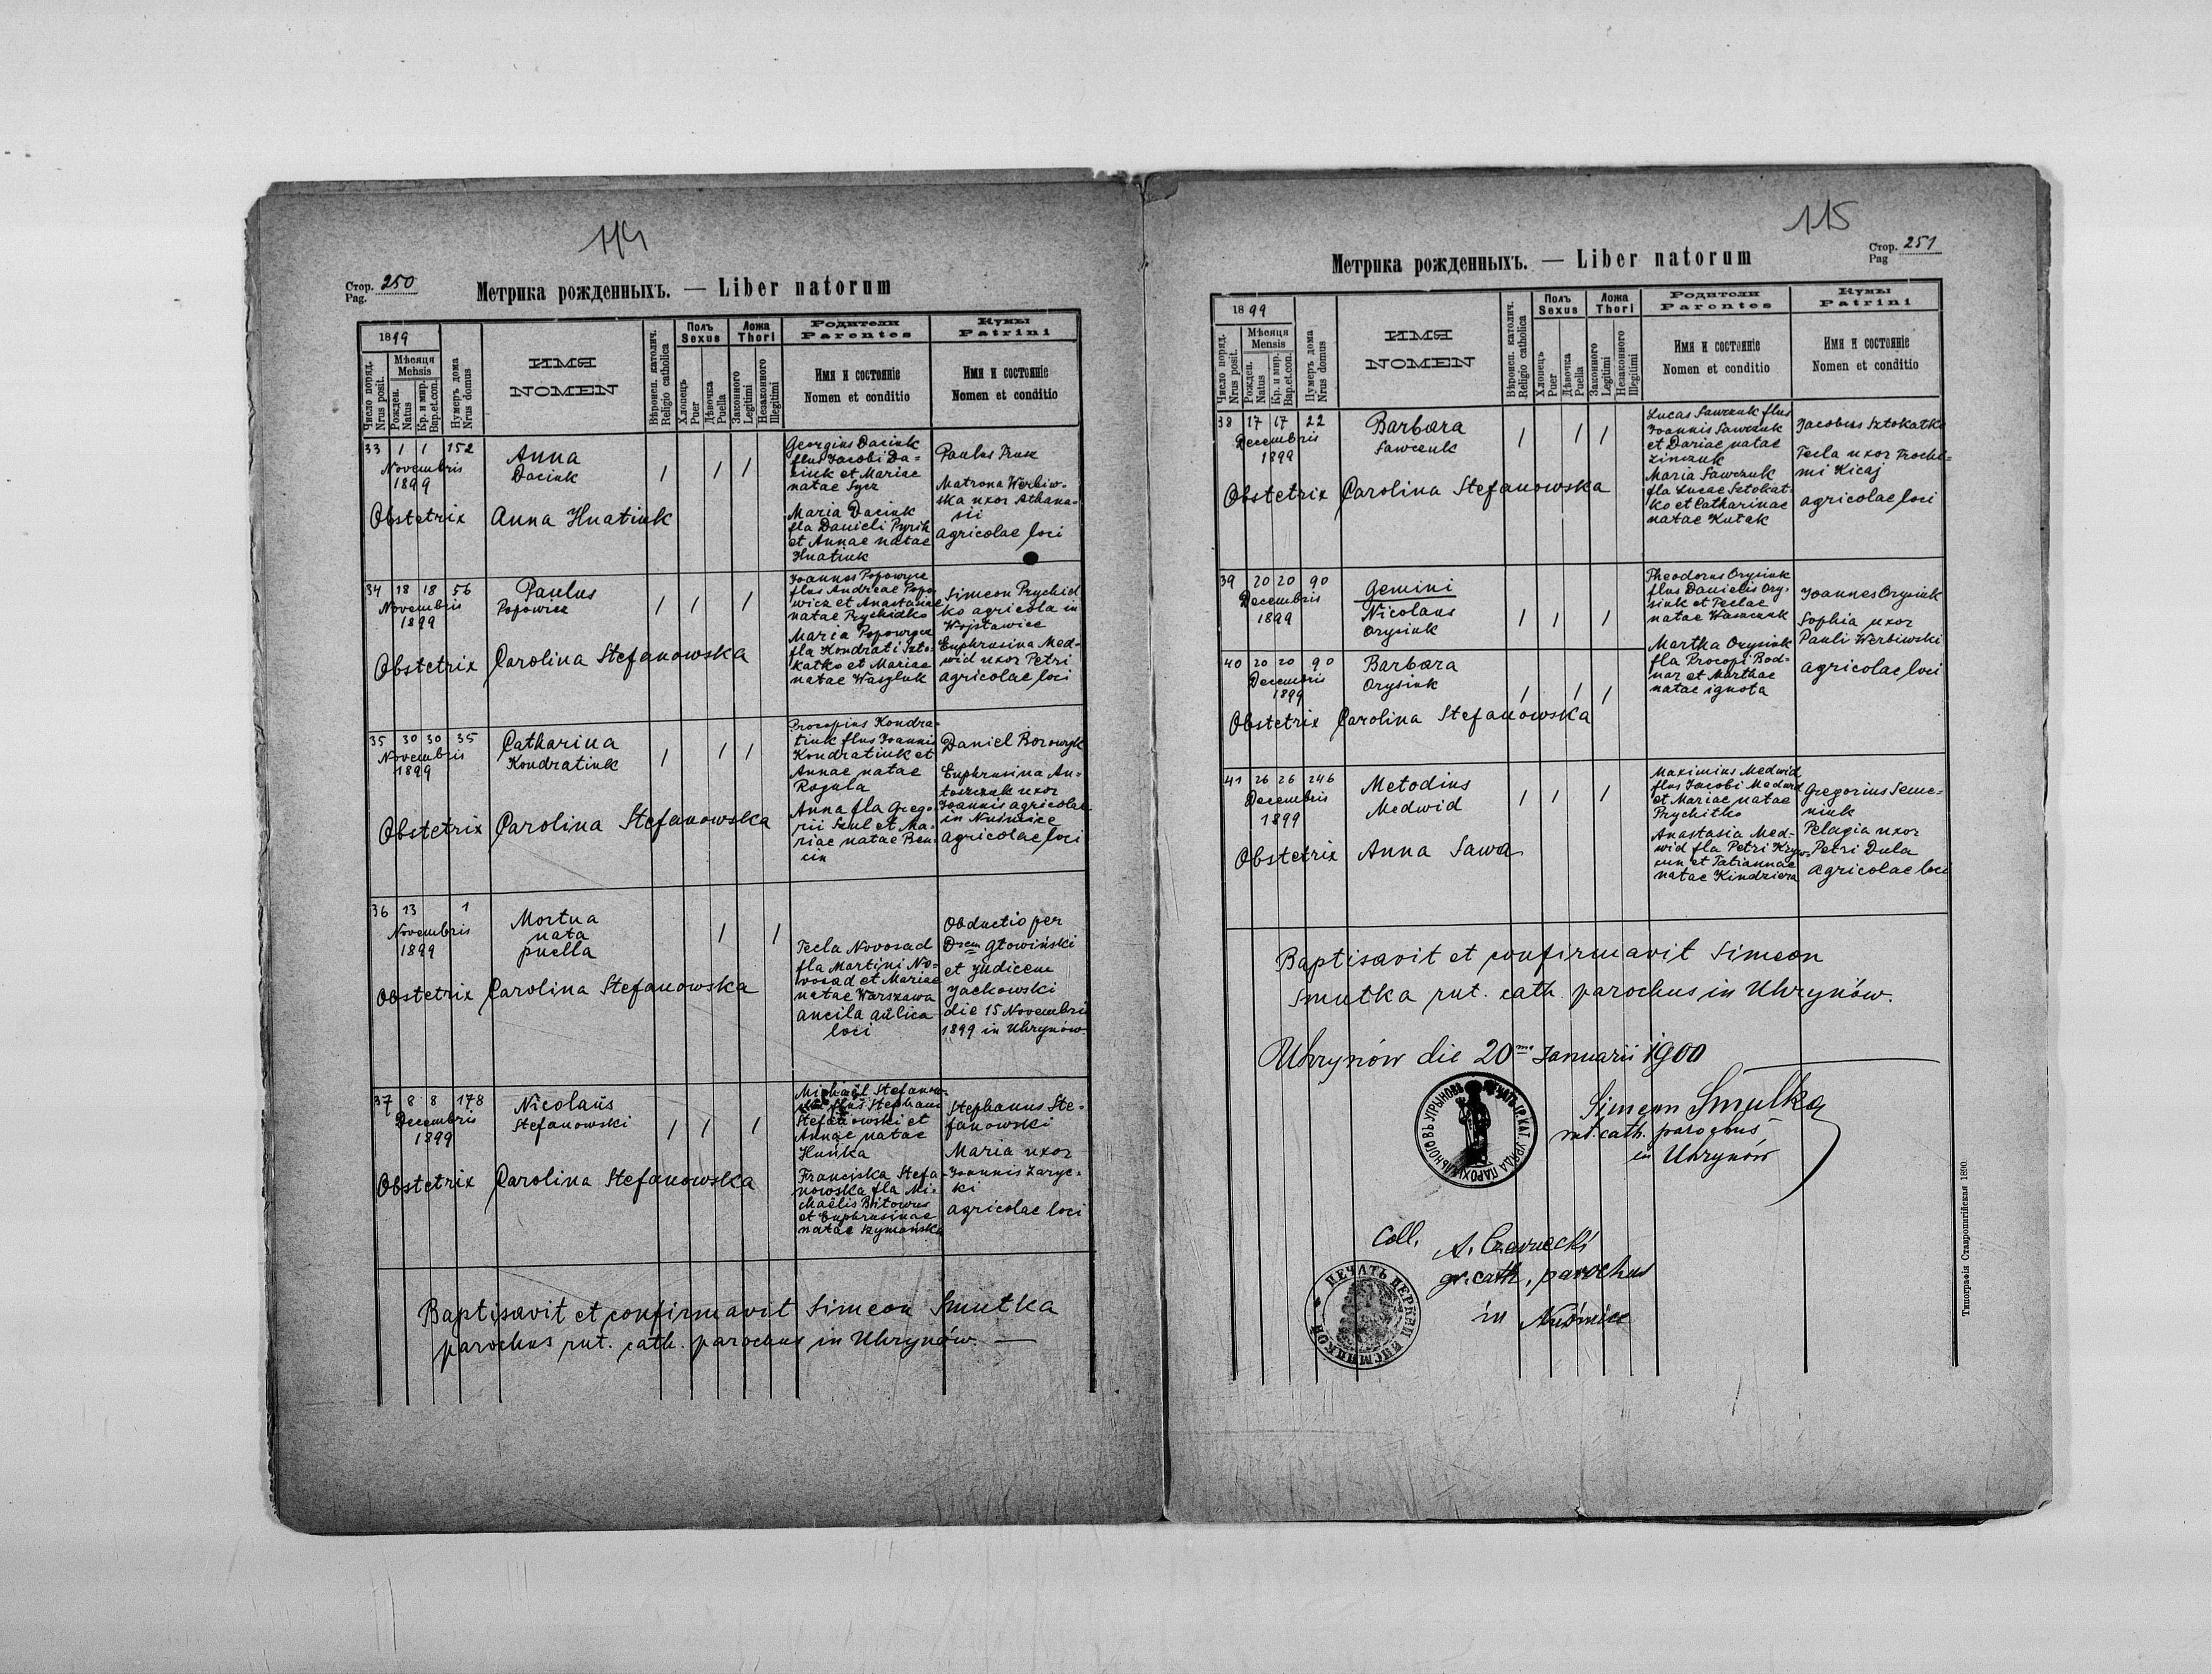 114
Стор. 250
Pag.
Метрика рожденныхъ. — Liber natorum
1899
Число поряд.
Nrus posit.
Мѣсяца
Mensis
Рожден.
Natus
Кр. и мир.
Bap.et.con.
Нумеръ дома
Nrus domus
ИМЯ
NOMEN
Вѣроисп. католич.
Religio catholica
Полъ
Sexus
Хлопецъ
Puer
Дѣвочка
Puella
Ложа
Thori
Законного
Legitimi
Незаконного
Illegitimi
Родители
Parentes
Имя и состоянie
Nomen et conditio
Кумы
Patrini
Имя и состоянie
Nomen et conditio
33 1 1 152
Novembris
1899
Anna
Daciuk
/ / /
Georgius Daciuk
flius Jacobi Da=
ciuk et Mariae
natae Sycz
Maria Daciuk
fla Danieli Pyrih
et Annae natae
Hnatiuk
Paulus Prusz
Matrona Werbiw-
ska uxor Athana-
sii
agricolae loci
Obstetrix Anna Hnatiuk
34 18 18 56
Novembris
1899
Paulus
Popowicz
/ / /
Joannes Popowycz
flus Andreae Popo
wicz et Anastasiae
natae Prychidko
Maria Popowycz
fla Kondrati Szto-
katko et Mariae
natae Wasyluk
Simeon Prychid
ko agricola in
Wojsławice
Euphrusina Med-
wid uxor Petri
agricolae loci
Obstetrix Carolina Stefanowska
35 30 30 35
Novembris
1899
Catharina
Kondratiuk
/ / /
Procopius Kondra-
tiuk flus Joannis
Kondratiuk et
Annae natae
Rogula
Anna fla Grego-
rii Szul et Ma-
riae natae Ben-
cin
Daniel Borowyk
Euphrusina An-
toszczuk uxor
Joannis agricolae
in Nuśmice
agricolae loci
Obstetrix Carolina Stefanowska
36 13 1
Novembris
1899
Mortua
nata
puella
/ /
Tecla Novosad
fla Martini No-
wosad et Mariae
natae Warszawa
ancila aulica
loci
Obductio per
Drem Głowiński
et Judicem
Jachowski
die 15 Novembris
1899 in Uhrynów
Obstetrix Carolina Stefanowska
37 8 8 178
Decembris
1899
Nicolaus
Stefanowski
/ / /
Michaël Stefanow-
flus Stephani
Stefanowski et
Annae natae
Huńka
Franciska Stefa
nowska fla Mi-
chaëlis Bitowus
et Euphrusinae
natae Szymańska
Stephanus Ste-
fanowski
Maria uxor
Joannis Zaryc-
ki
agricolae loci
Obstetrix Carolina Stefanowska
Baptisavit et confirmavit Simeon Smutka
parochus rut. cath. parochus in Uhrynów. —
115
Стор. 251
Pag
Метрика рожденныхъ. — Liber natorum
1899
Число поряд.
Nrus posit.
Мѣсяца
Mensis
Рожден.
Natus
Кр. и мир.
Bap.et.con.
Нумеръ дома
Nrus domus
ИМЯ
NOMEN
Вѣроисп. католич.
Religio catholica
Полъ
Sexus
Хлопецъ
Puer
Дѣвочка
Puella
Ложа
Thori
Законного
Legitimi
Незаконного
Illegitimi
Родители
Parentes
Имя и состоянie
Nomen et conditio
Кумы
Patrini
Имя и состоянie
Nomen et conditio
38 17 17 22
Decembris
1899
Barbara
Sawczuk
/ / /
Lucas Sawczuk flus
Joannis Sawczuk
et Dariae natae
Zinczuk
Maria Sawczuk
fla Lucae Sztokat-
ko et Catharinae
natae Kutak
Jacobus Sztokatko
Tecla uxor Trochi=
mi Kicaj
agricolae loci
Obstetrix Carolina Stefanowska
39 20 20 90
Decembris
1899
Gemini
Nicolaus
Orysiuk
/ / /
Theodorus Orysiuk
flus Danielis Ory-
siuk et Teclae
natae Wasaczuk
Martha Orysiuk
fla Procopi Bod=
nar et Marthae
natae ignota
Joannes Orysiuk
Sophia uxor
Pauli Werbiwski
agricolae loci
40 20 20 90
Decembris
1899
Barbara
Orysiuk
/ / /
Obstetrix Carolina Stefanowska
41 26 26 246
Decembris
1899
Metodius
Medwid
/ / /
Maximius Medwid
flus Jacobi Medwid
et Mariae natae
Prychitko
Anastasia Med-
wid fla Petri Kryw-
cun et Tatiannae
natae Kindziera
Gregorius Seme-
niuk
Pelagia uxor
Petri Dula
agricolae loci
Obstetrix Anna Sawa
Baptisavit et confirmavit Simeon
Smutka rut. cath. parochus in Uhrynów.
Uhrynów die 20mo Januarii 1900
Simeon Smutka
rut. cath. parochus
in Uhrynów
Coll. A. Czarnecki
gr. cath. parochus
in Nuśmice
Типографія Ставропигійская 1890.